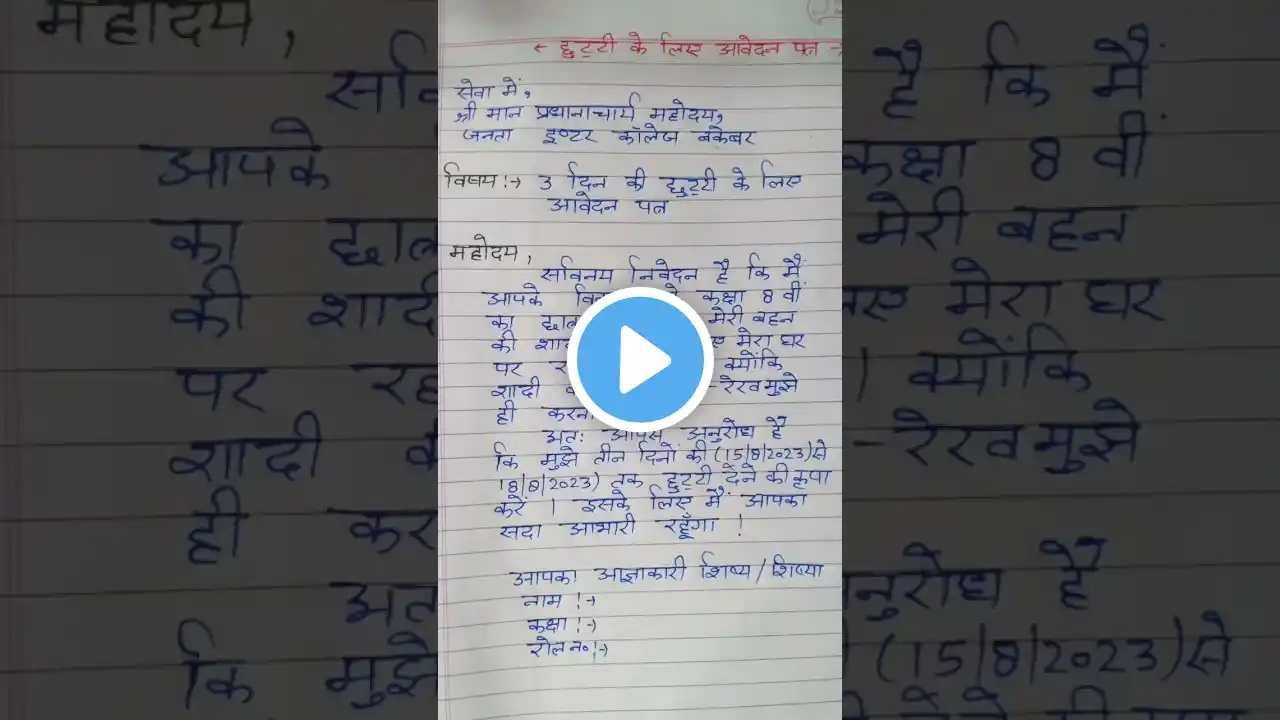 ← छुट्टी के लिए आवेदन पत्र →
सेवा में,
श्री मान प्रधानाचार्य महोदय,
जनता इण्टर कॉलेज बकेबर
विषय:→ 3 दिन की छुट्टी के लिए
आवेदन पत्र
महोदय,
सविनय निवेदन है कि मैं
आपके कक्षा 8 वीं
का मेरी बहन
की मेरा घर
पर क्योंकि
शादी रेख मुझे
ही
अतः आपसे अनुरोध है
कि मुझे तीन दिनों की (15/8/2023) से
18/8/2023) तक छुट्टी देने की कृपा
करें । इसके लिए मैं आपका
सदा आभारी रहूँगा !
आपका आज्ञाकारी शिष्य/शिष्या
नाम !→
कक्षा !→
रोल न० !→